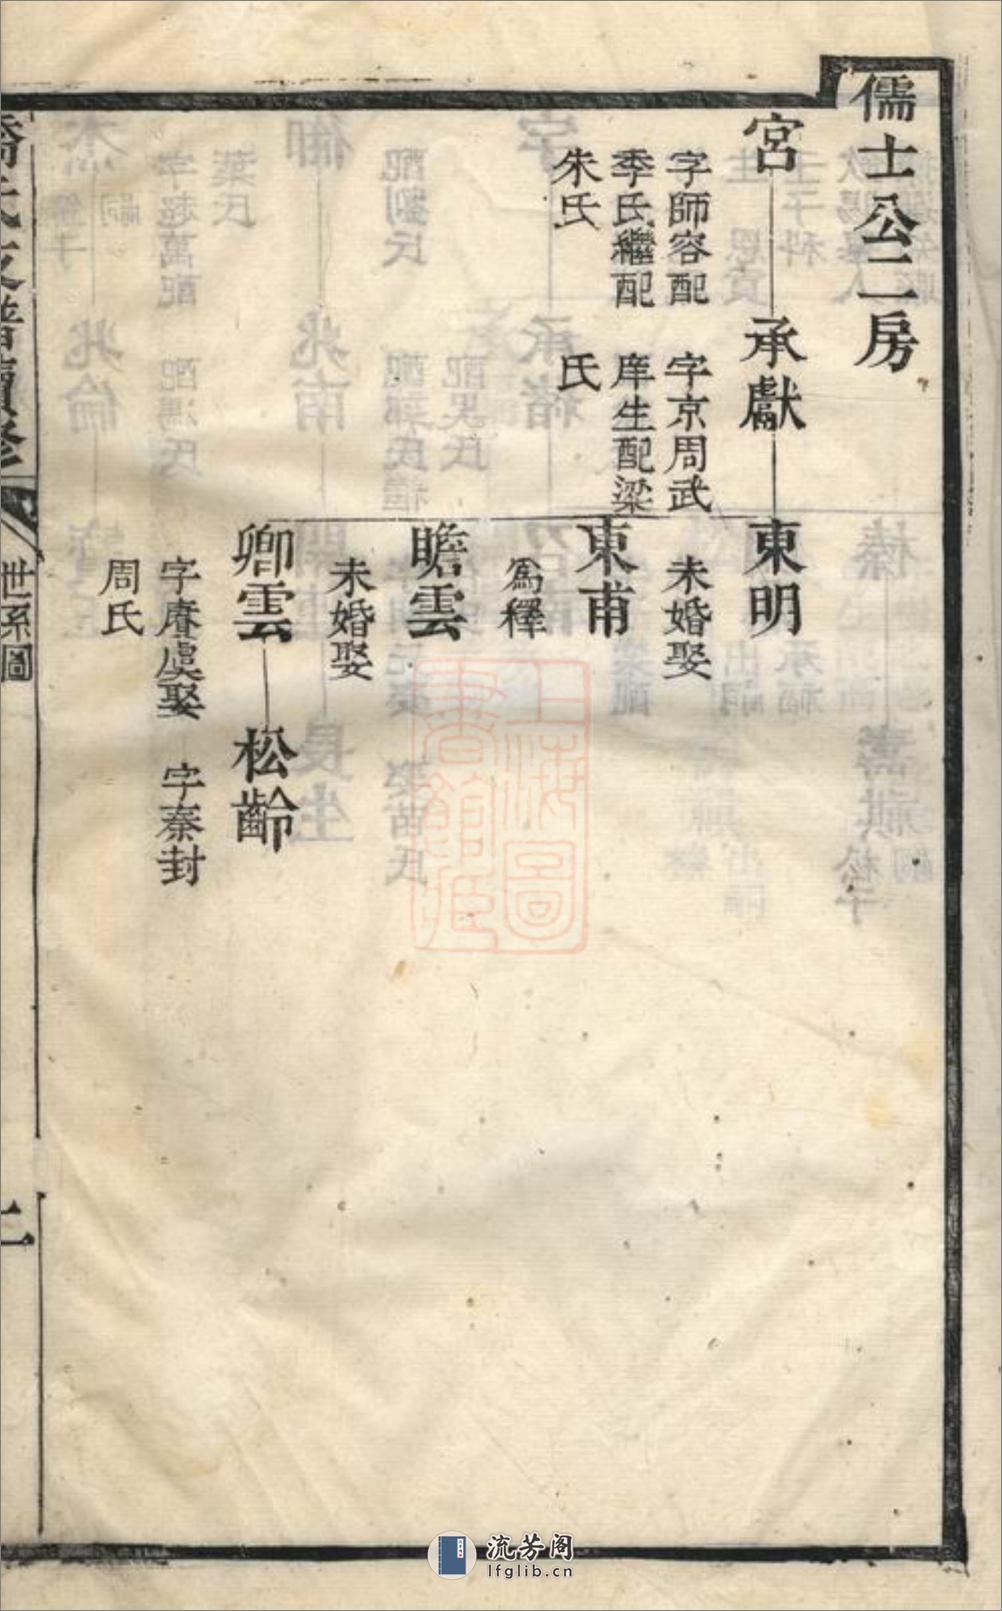 儒士公二房
宮
字師容配
季氏繼配
朱氏
承獻
字京周武
庠生配梁
氏
東明
未婚娶
東甫
為釋
瞻雲
未婚娶
卿雲
字賡虞娶
周氏
松齡
字秦封
世系圖
二
上海圖
書館藏
流芳阁
lfglib.cn